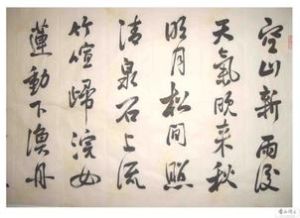 空山新雨後
天氣晚来秋
明月松間照
清泉石上流
竹喧歸浣女
蓮動下漁舟